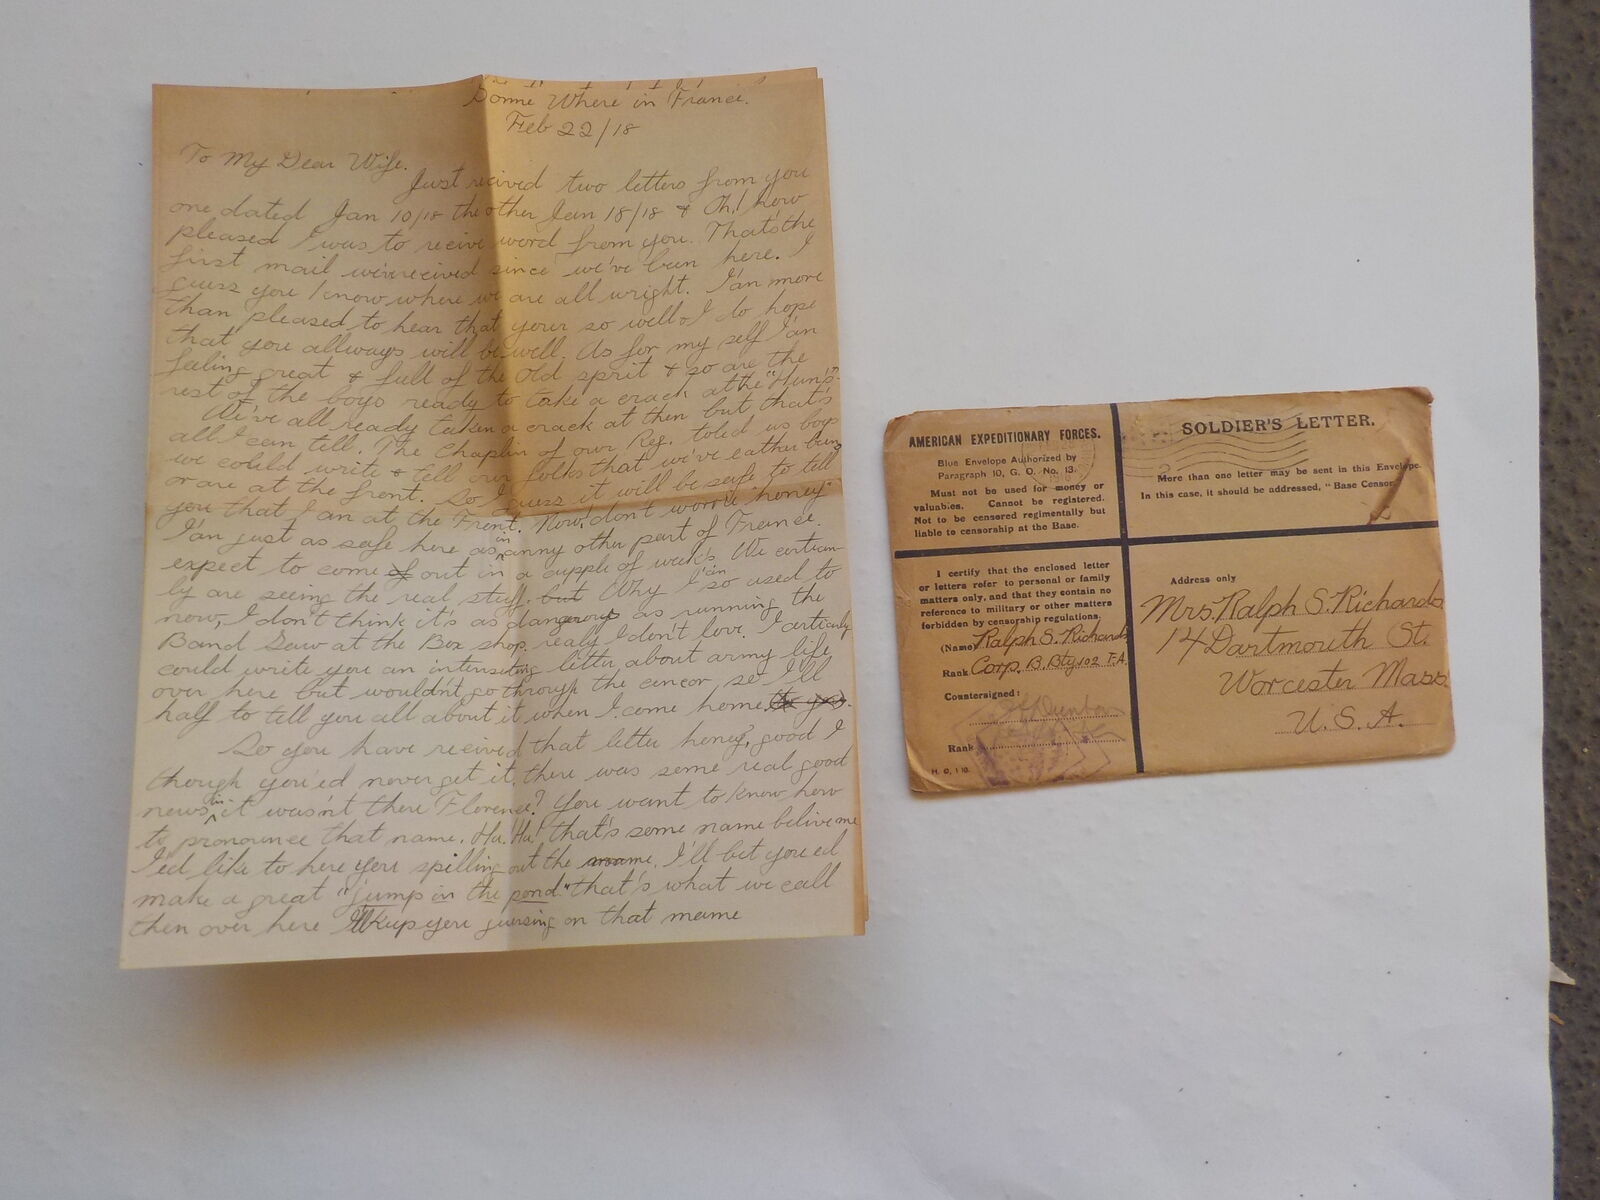 Some Where in France.
Feb 22/18
To My Dear Wife.
Just recived two letters from you
one dated Jan 10/18 the other Jan 18/18 & Oh! how
pleased I was to recive word from you. That's the
first mail we've recived since we've bun here. I
guess you know where we are all wright. I'am more
than pleased to hear that your so well & I do hope
that you allways will be well. As for my self I'am
feeling great & full of the old sprit & so are the
rest of the boys ready to take a crack at the "Hunp"
We've all ready taken a crack at then but that's
all I can tell. The Chaplin of our Reg. told us boys
we cohld write & tell our folks that we've eather bun
or are at the front. So I guss it will be safe to tell
you that I am at the Front. Now! don't worrie "honey"
I'am just as safe here as in anny other part of France.
expect to come of out in a cupple of week's We certian-
ly are seeing the real stuff. but Why I'am so used to
now, I don't think it's as dangerous as running the
Band Saw at the Box shop, realy I don't love. I certianly
could write you an intensting letter about army life
over here but wouldn't go through the cencor, so I'll
half to tell you all about it when I come home.
So you have recived that letter honey, good I
though you'ed never get it, there was some real good
news in it wasn't there Florence? You want to know how
to pronounce that name. Ha! Ha! that's some name belive me
I'ed like to here you spilling out the name. I'll bet you ed
make a great "jump in the pond" that's what we call
then over here I'll kup you guesing on that mame
AMERICAN EXPEDITIONARY FORCES.
Blue Envelope Authorized by
Paragraph 10, G. O. No. 13.
Must not be used for money or
valuables. Cannot be registered.
Not to be censored regimentally but
liable to censorship at the Base.
SOLDIER'S LETTER.
More than one letter may be sent in this Envelope.
In this case, it should be addressed, "Base Censor
I certify that the enclosed letter
or letters refer to personal or family
matters only, and that they contain no
reference to military or other matters
forbidden by censorship regulations.
(Name) Ralph S. Richards
Rank Corp. B. Bty 102 F.A.
Countersigned:
Rank
H. Q, 1 10.
Address only
Mrs. Ralph S. Richards
14 Dartmouth St.
Worcester Mass
U. S. A.